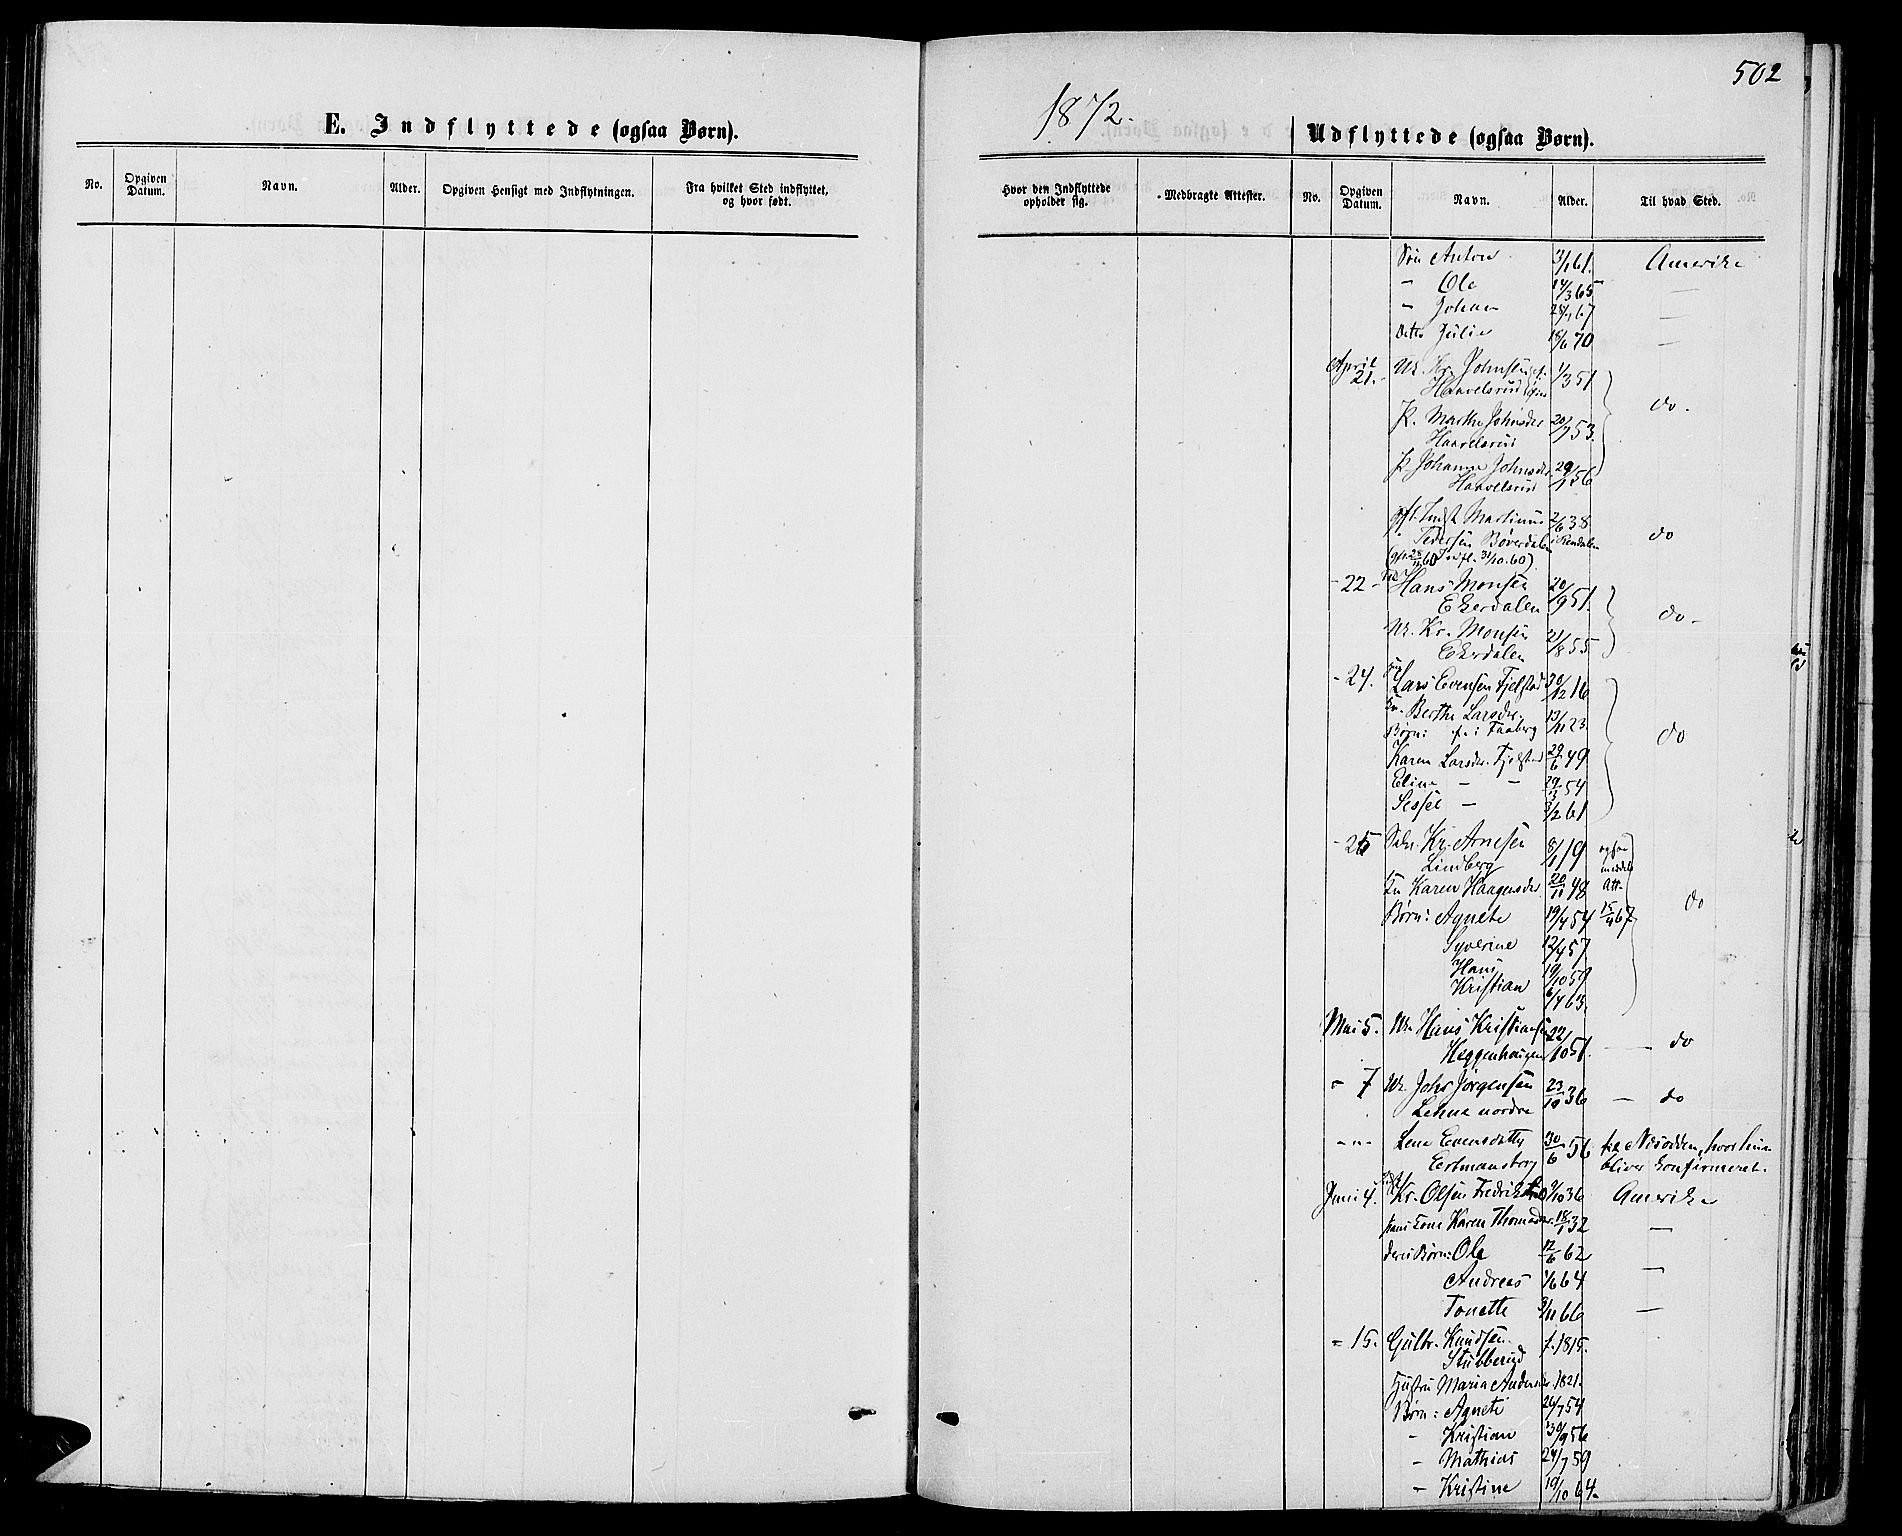 502
1872.
E. Indflyttede (ogsaa Børn).
No.
Opgiven Datum.
Navn.
Alder.
Opgiven Hensigt med Indflytningen.
Fra hvilket Sted indflyttet, og hvor født.
Udflyttede (ogsaa Børn).
Hvor den Indflyttede opholder sig.
Medbragte Attester.
No.
Opgiven Datum.
Navn.
Alder.
Til hvad Sted.
Søn Anton 3/1 61. Amerika
- Ole 14/3 65 —
- Johan 67 —
Datter Julie 18/6 70 —
April 21. Uk. Kr. Johnsen 1/3 51
Haavelsrud
do.
P. Marthe Johnsdr 20/7 53.
Haavelsrud
P. Johanne Johnsdr. 29/1 56
Haavelsrud
gft. Martinus 2/6 38
Pedersen Bøverdalen i Rendalen do
Indfl. 31/10.60)
- 22 - Hans Monsen 20/9 51.
Ekerdalen
do -
Uk. Kr. Monsen 21/8 55
Ekerdalen
- 24. Lars Evensen Fjelstad 30/12 16
Berthe Larsdr. 13/11 23.
Børn: f. i Faaberg
do
Karen Larsdr. Fjelstad 29/6 49
Eline - - 54
Sessel - 3/2 61
- 25 Kr. Arnesen 8/1 19 ogsaa
Lindberg meddelt
Karen Haagensdr 20/11 48 Att.
Børn: Agnete 19/4 54 15/4 67 do
Syverine 12/4 57
Hans 19/10 59
Kristian 6/4 63.
Mai 5. Uk. Hans Kristiansen 22/10 51. — do
Heggenhaugen
- 7 Uk. Johs Jørgensen 23/10 36 — do
Lehne nordre
- " - Lene Evensdatter 30/6 56 til Nesodden, hvor hun
Eertmansborg bliver konfirmeret.
Juni 4. Kr. Olsen Fredrikstad 9/10 36 Amerika
Hans Kone Karen Thomasdr. 18/1 32 —
deres Børn: Ole 12/6 62
Andreas 1/6 64 —
Tonette 3/11 66 —
= 15. Gulbr. Knudsen f. 1815.
Stubberud
Hustru Maria Andersdr. 1821.
Børn: Agnete 26/7 54
- Kristian 30/9 56
- Mathias 24/7 59
- Kristine 19/10 64.